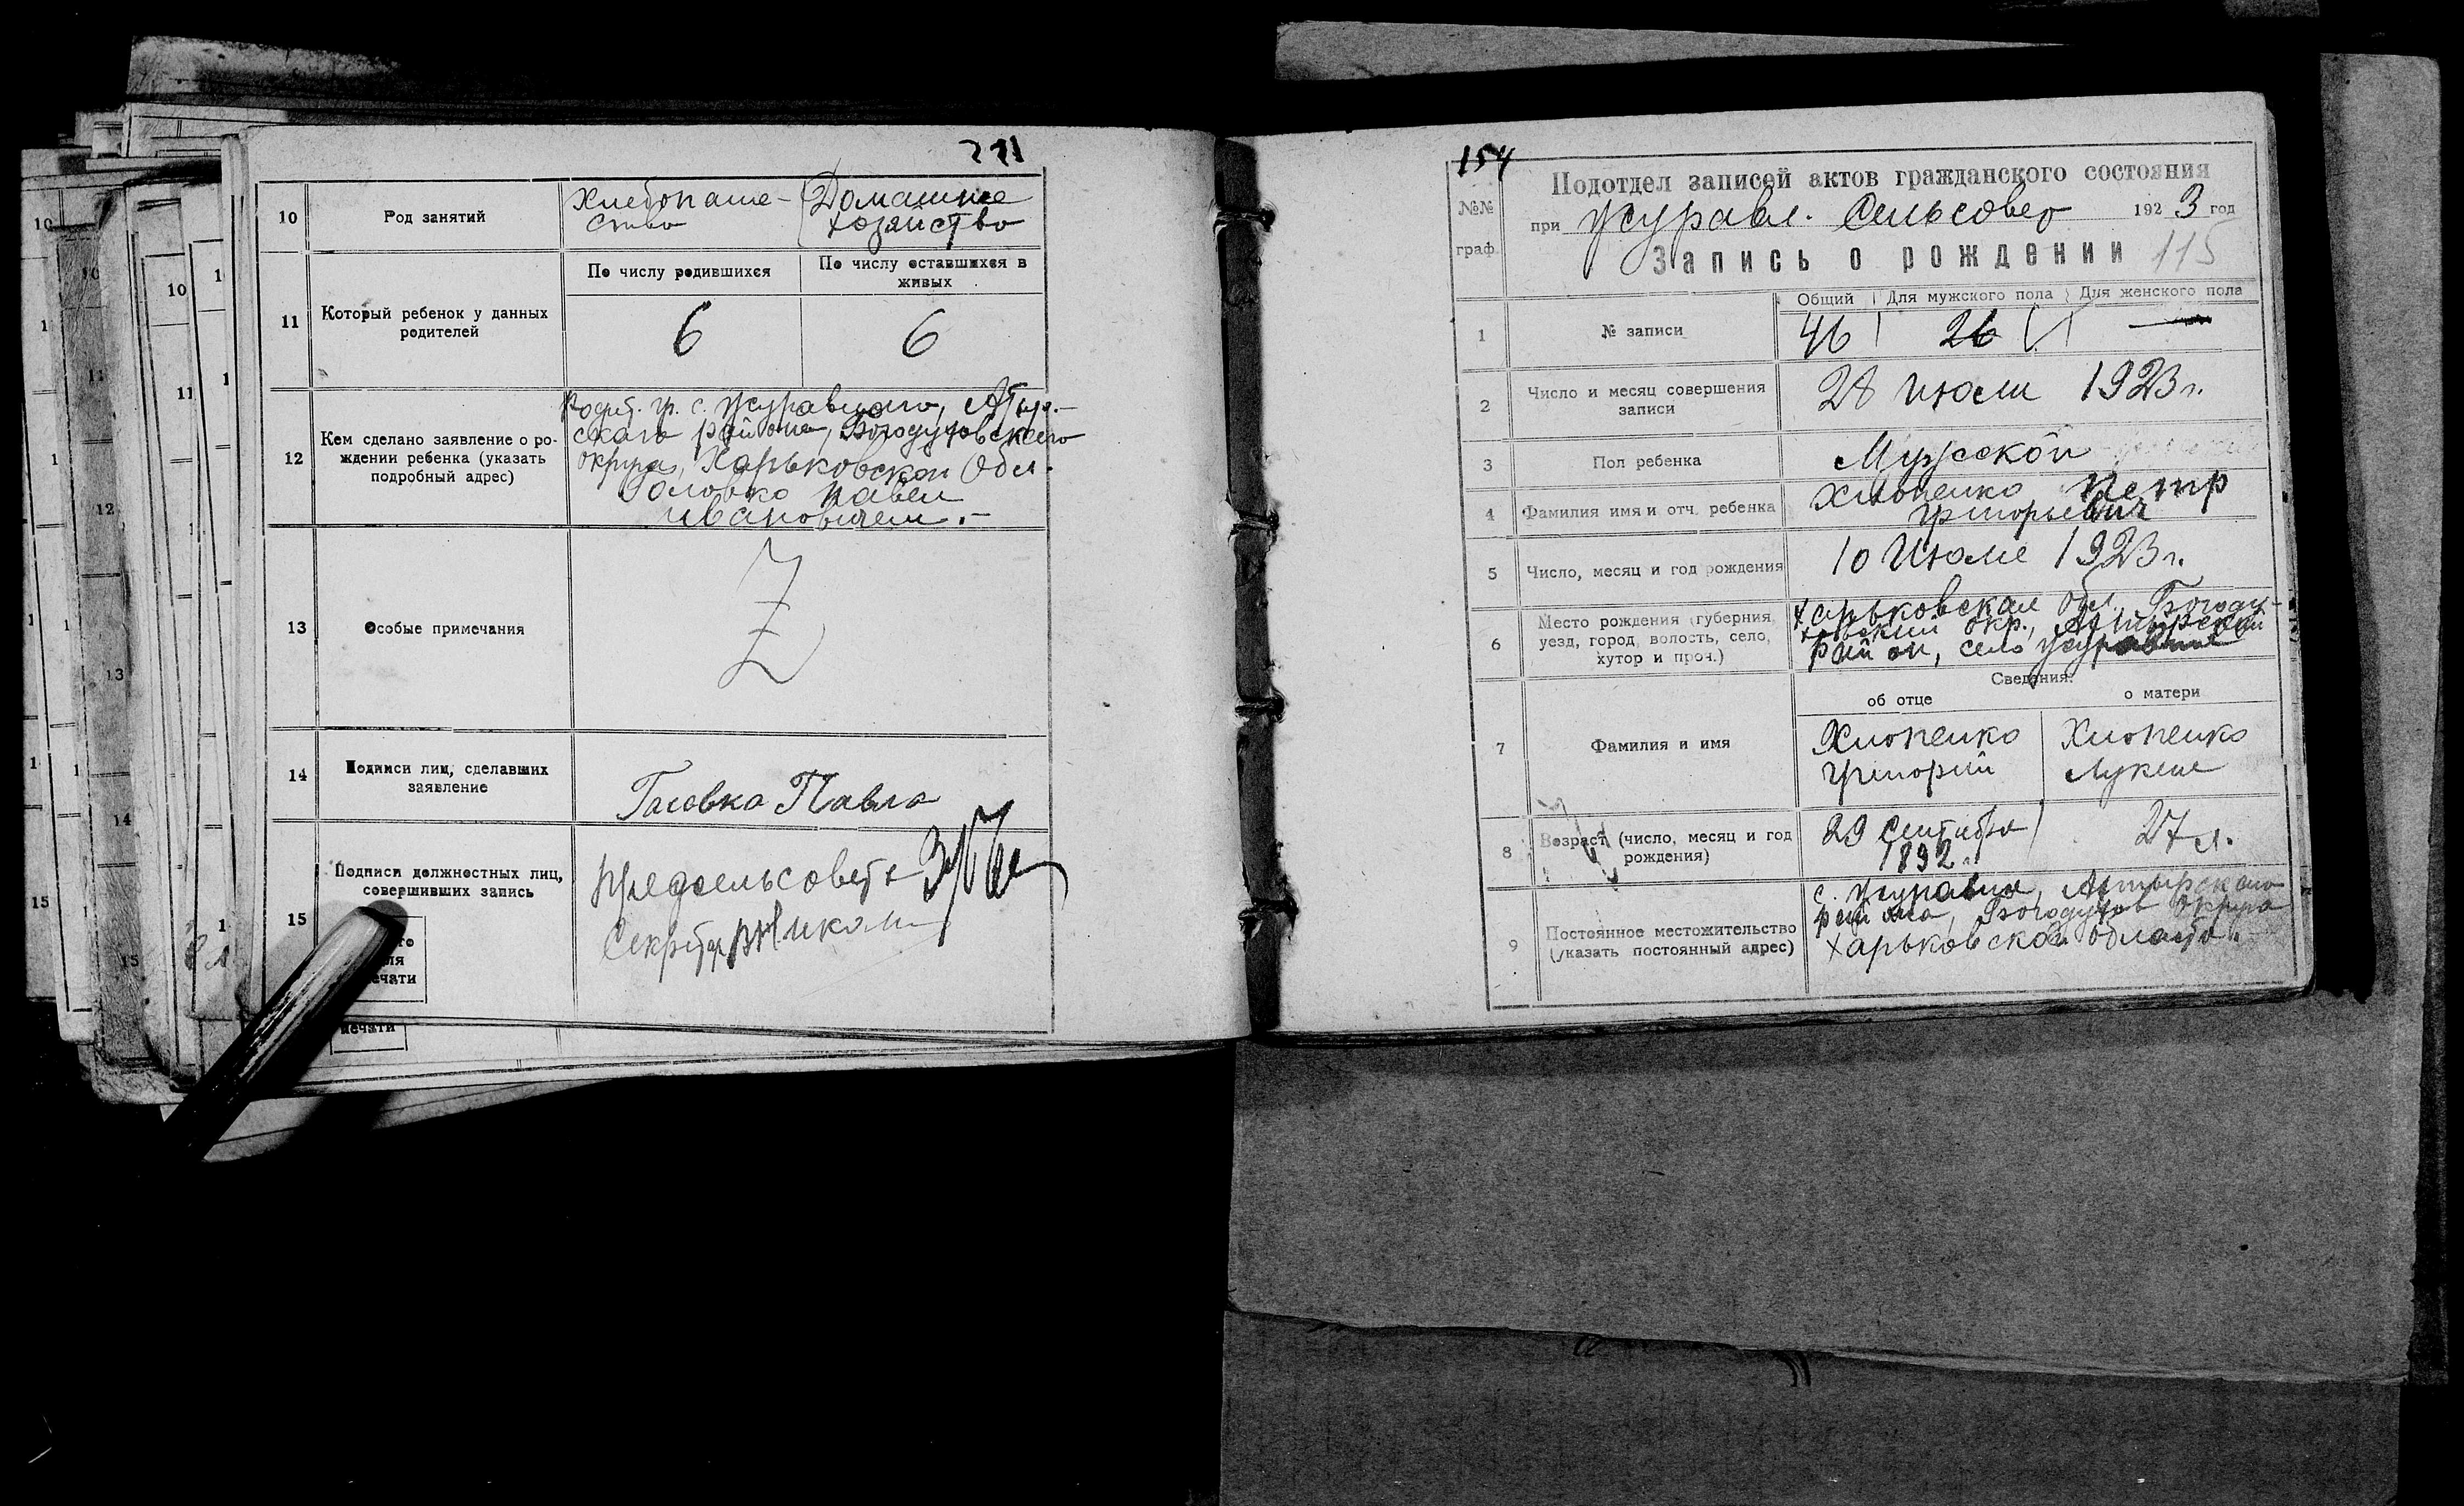 10
Род занятий
Хлебопаше-
ство
Домашнее
хозяйство
11
Который ребенок у данных
родителей
По числу родившихся
По числу оставшихся в
живых
6
6
12
Кем сделано заявление о ро-
ждении ребенка (указать
подробный адрес)
гр. с. Журавного,
ского района, Богодуховского
округа, Харьковской Обл.
Головко Павел
Ивановичем.-
13
Особые примечания
Z
14
Подписи лиц, сделавших
заявление
Головко Павло
15
Подписи должностных лиц,
совершивших запись
Предсельсовета
Секретар
ечати
печати
154
№№
граф.
Подотдел записей актов гражданского состояния
при Журавл. Сельсовет 1923 год
Запись о рождении 115
1
№ записи
Общий
Для мужского пола
Для женского пола
46
26
—
2
Число и месяц совершения
записи
28 июля 1923 г.
3
Пол ребенка
Мужской
4
Фамилия имя и отч. ребенка
Хлопенко Петр
Григорьевич
5
Число, месяц и год рождения
10 Июля 1923 г.
6
Место рождения (губерния,
уезд, город, волость, село,
хутор и проч.)
Харьковская обл. Богоду-
ховский окр., Ахтырский
район, село Журавное
Сведения:
об отце
о матери
7
Фамилия и имя
Хлопенко
Григорий
Хлопенко
Лукия
8
Возраст (число, месяц и год
рождения)
29 Сентября
1892 г.
27 л.
9
Постоянное местожительство
(указать постоянный адрес)
с. Журавна, Ахтырского
района, Богодухов округа
Харьковской области.